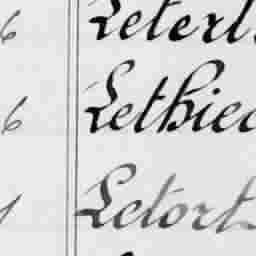 6 Leterl
6 Lethied
1 Letort